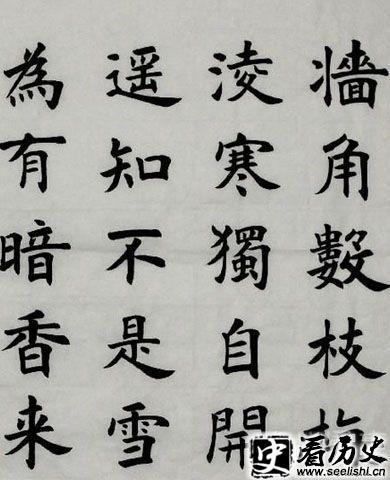 牆角數枝
淩寒獨自開
遥知不是雪
為有暗香来
史 看历史
www.seelishi.cn